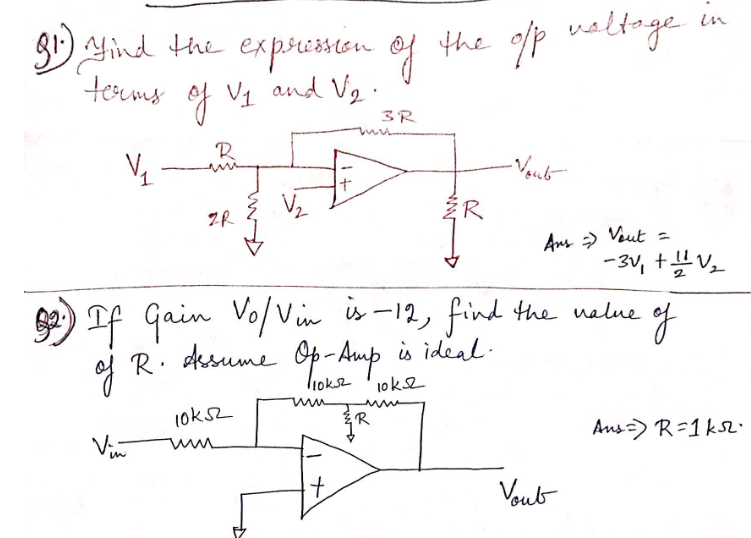 Q1.) Find the expression of the o/p voltage in
terms of V1 and V2.
3R
R
V1
Vout
-
+
V2
2R
R
Ans => Vout =
-3V1 + 11/2 V2
Q2.) If Gain Vo/Vin is -12, find the value of
of R. Assume Op-Amp is ideal.
10kΩ 10kΩ
10kΩ
R
Ans=> R=1kΩ.
Vin
-
+
Vout